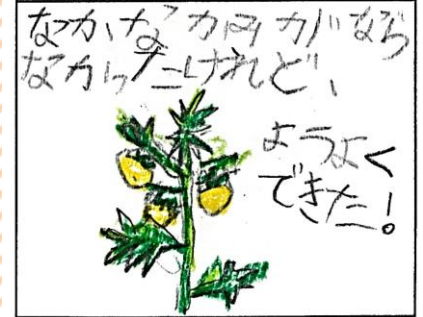 なかなかみがなら
なかったけれど、
ようよく
できた!